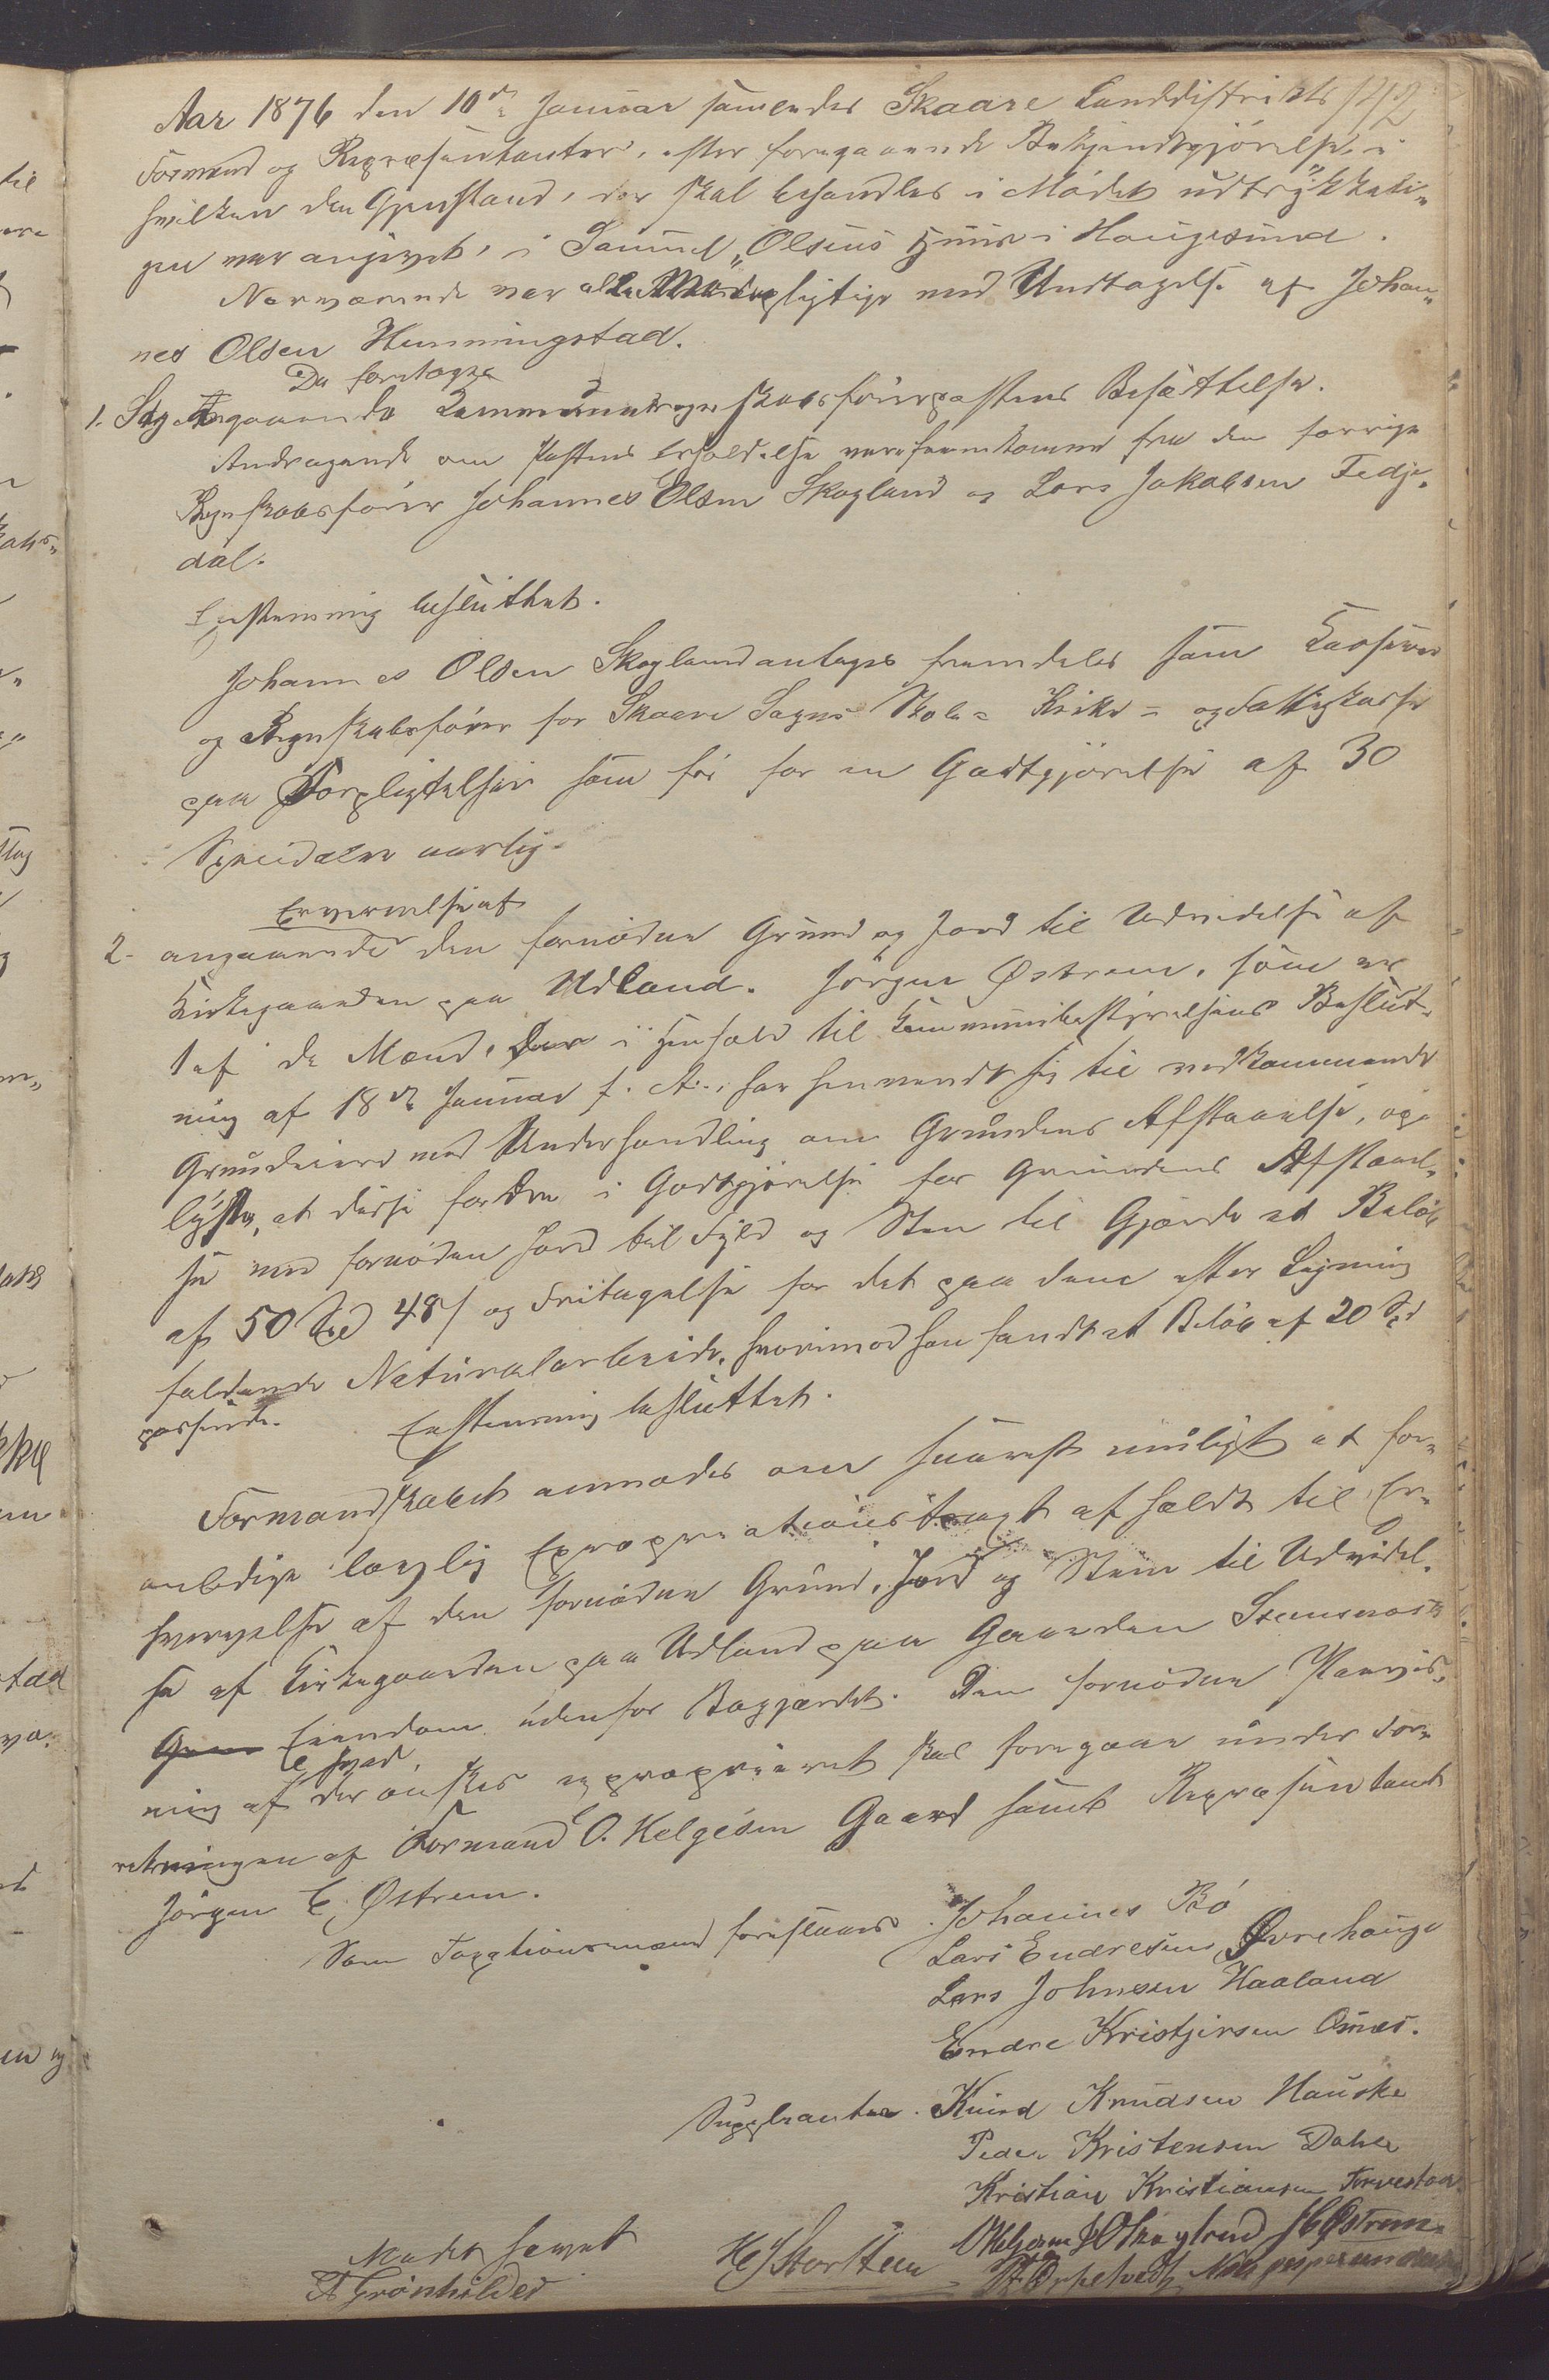 Aar 1876 den 10de Januar samledes Skaare Landdistrikts 142
Formænd og Repræsentanter, efter foregaaende Bekjendtgjörelse, i
hvilken den Gjenstand, der skal behandles i Mödet udtrykkeli-
gen var angivet, i Samuel Olsens Huus i Haugesund.
Nærværende var alle Mödepligtige med Undtagelse af Johan-
nes Olsen Hemmingstad.
Da foretoges
1. Sag Angaaende Kommuneregnskabsförerpostens Besættelse.
Andragende om Postens Erholdelse var fremkommet fra den forrige
Regnskabsförer Johannes Olsen Skogland og Lars Jakobsen Fedje-
dal.
Enstemmig besluttet.
Johannes Olsen Skogland antages fremdeles som Kasserer
og Regnskabsförer for Skaare Sogns Skole- Kirke- og Fattigkasse
paa Forpligtelser som för for en Godtgjörelse af 30
Speciedaler aarlig.
Erhvervelse af
2. angaaende den fornödne Grund og Jord til Udvidelse af
Kirkegaarden paa Udland. Jörgen Østrem, som er
1 af de Mænd, der i Henhold til Kommunebestyrelsens Beslut-
ning af 18de Januar f. A., har henvendt sig til vedkommende
Grundeiere med Underhandling om Grundens Afstaaelse, op-
lyste, at disse fordre i Godtgjörelse for Grundens Afstaael-
se med fornöden Jord til Fyld og Sten til Gjærde et Belöb
af 50 Spd 48 s og Fritagelse for det paa dem efter Ligning
faldende Naturalarbeide, hvorimod han fandt et Belöb af 20 Spd
passende. Enstemmig besluttet.
Formandskabet anmodes om snarest muligt at for-
anledige lovlig Expropriationstaxt afholdt til Er-
hvervelse af den fornödne Grund, Jord og Sten til Udvidel-
se af Kirkegaarden paa Udland paa Gaarden
Eiendom udenfor Bøgjærdet. Den fornödne Paavis-
hvad
ning af der önskes expropriæret skal foregaa under For-
retningen af Formand O. Helgesen Gaard samt Repræsentant
Jörgen E. Østrem.
Som Taxationsmænd foreslaaes Johannes Bö
Lars Endresen Øvrehauge
Lars Johnsen Haaland
Endre Kristjersen Omes.
Suppleanter. Knud Knudsen Hauske
Peder Kristensen Dahle
Kristian Kristiansen Torvestad
Mødet hævet
OHelgesen JOSkogland JEØstrem
HGStorsteen